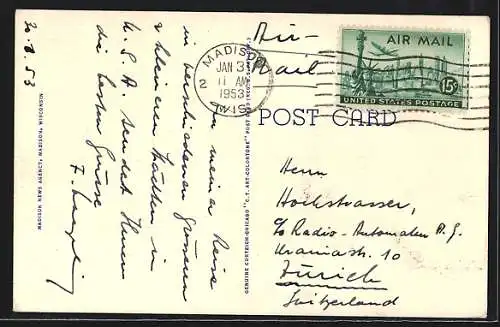 30.1.53
Auf meiner Reise
in verschiedenen grösseren
& kleineren Städten in
U.S.A sendet Ihnen
die besten Grüsse
Air-
Mail
MADISON
JAN 3
11 AM
1953
WIS.
2
AIR MAIL
15¢
UNITED STATES POSTAGE
POST CARD
Herrn
Hochstrasser,
c/o Radio-Automaten A.G.
Uraniastr. 10
Zürich
Switzerland
MADISON NEWS AGENCY, MADISON, WISCONSIN
GENUINE CURTEICH-CHICAGO "C.T. ART-COLORTONE" POST CARD